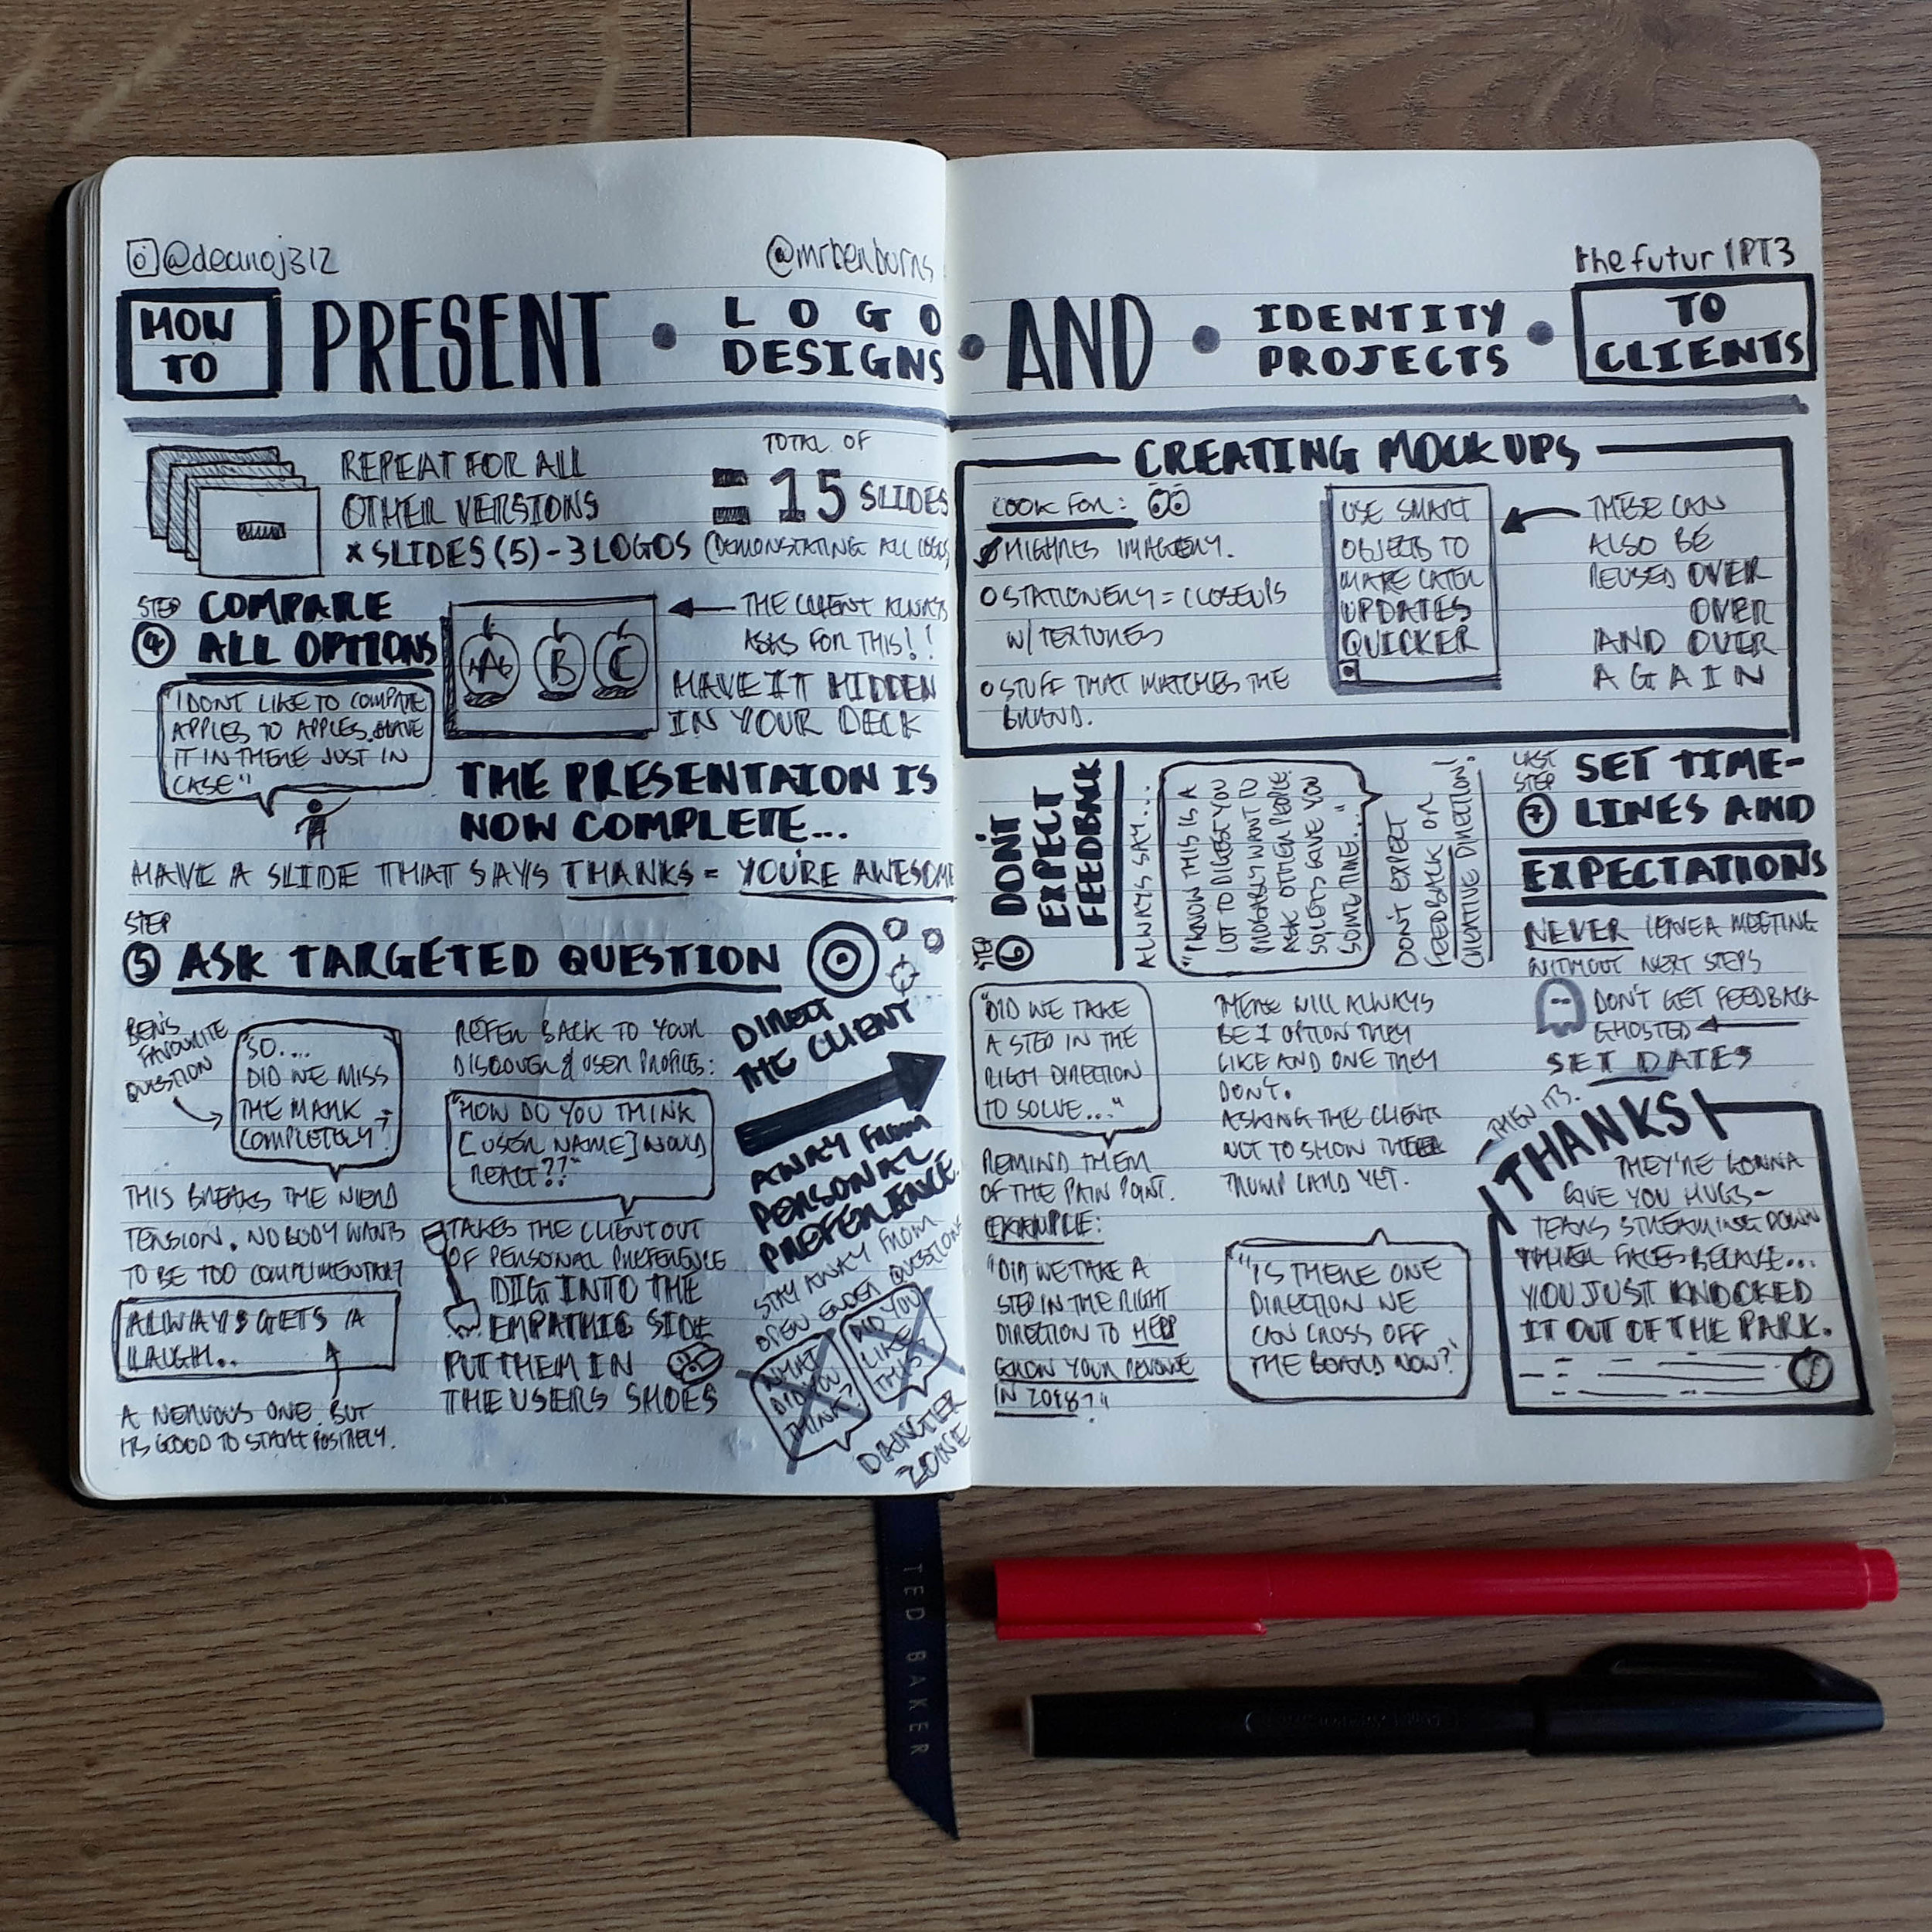 @deanoj312
@mrbenburns
the futur | PT3
HOW TO
PRESENT
LOGO DESIGNS
AND
IDENTITY PROJECTS
TO CLIENTS
REPEAT FOR ALL
OTHER VERSIONS
× SLIDES (5) - 3 LOGOS (DEMONSTATING ALL LOGOS
TOTAL OF
= 15 SLIDES
STEP
4 COMPARE
ALL OPTIONS
"I DONT LIKE TO COMPARE
APPLES TO APPLES. HAVE
IT IN THERE JUST IN
CASE"
A B C
THE CLIENT ALWAYS
ASKS FOR THIS!!
HAVE IT HIDDEN
IN YOUR DECK
THE PRESENTAION IS
NOW COMPLETE...
HAVE A SLIDE THAT SAYS THANKS = YOU'RE AWESOME
STEP
5 ASK TARGETED QUESTION
BEN'S
FAVOURITE
QUESTION
"SO....
DID WE MISS
THE MARK
COMPLETELY?"
THIS BREAKS THE WEIRD
TENSION. NOBODY WANTS
TO BE TOO COMPLIMENTARY
ALWAYS GETS A
LAUGH..
A NERVOUS ONE, BUT
ITS GOOD TO START POSITIVELY.
REFER BACK TO YOUR
DISCOVER & USER PROFILES:
"HOW DO YOU THINK
[USER NAME] WOULD
REACT??"
TAKES THE CLIENT OUT
OF PERSONAL PREFERENCE
DIG INTO THE
EMPATHIC SIDE
PUT THEM IN
THE USERS SHOES
DIRECT
THE CLIENT
AWAY FROM
PERSONAL
PREFERENCE.
STAY AWAY FROM
OPEN ENDED QUESTIONS
WHAT
DID YOU
THINK?
DID YOU
LIKE
THIS?
DANGER
ZONE
CREATING MOCKUPS
LOOK FOR:
HIGHRES IMAGERY.
STATIONERY = CLOSEUPS
W/ TEXTURES
STUFF THAT MATCHES THE
BRAND.
USE SMART
OBJECTS TO
MAKE LATER
UPDATES
QUICKER
THESE CAN
ALSO BE
REUSED OVER
OVER
AND OVER
AGAIN
STEP
6 DON'T
EXPECT
FEEDBACK
ALWAYS SAY....
"I KNOW THIS IS A
LOT TO DIGEST YOU
PROBABLY WANT TO
ASK OTHER PEOPLE.
SO LETS GIVE YOU
SOME TIME...."
DON'T EXPERT
FEEDBACK OR
CREATIVE DIRECTION!
"DID WE TAKE
A STEP IN THE
RIGHT DIRECTION
TO SOLVE..."
REMIND THEM
OF THE PAIN POINT.
EXAMPLE:
"DID WE TAKE A
STEP IN THE RIGHT
DIRECTION TO HELP
GROW YOUR REVENUE
IN 2018?"
THERE WILL ALWAYS
BE 1 OPTION THEY
LIKE AND ONE THEY
DON'T.
ASKING THE CLIENT
NOT TO SHOW THEIR
TRUMP CARD YET.
"IS THERE ONE
DIRECTION WE
CAN CROSS OFF
THE BOARD NOW?"
LAST
STEP
7 SET TIME-
LINES AND
EXPECTATIONS
NEVER LEAVE A MEETING
WITHOUT NEXT STEPS
DON'T GET FEEDBACK
GHOSTED
SET DATES
THEN ITS..
THANKS
THEY'RE GONNA
GIVE YOU HUGS -
TEARS STREAMING DOWN
THEIR FACES BECAUSE...
YOU JUST KNOCKED
IT OUT OF THE PARK.
TED BAKER